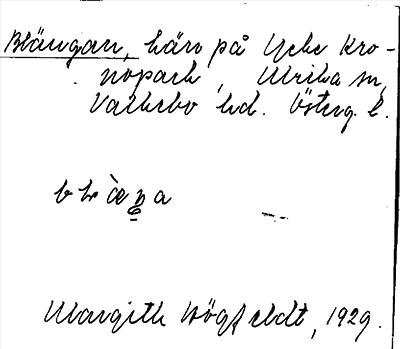 Blängan, kärr på Yche Kro-
nopark, Ulrika sn,
Valkebo hd. Österg. l.
Margith Högfeldt, 1929.